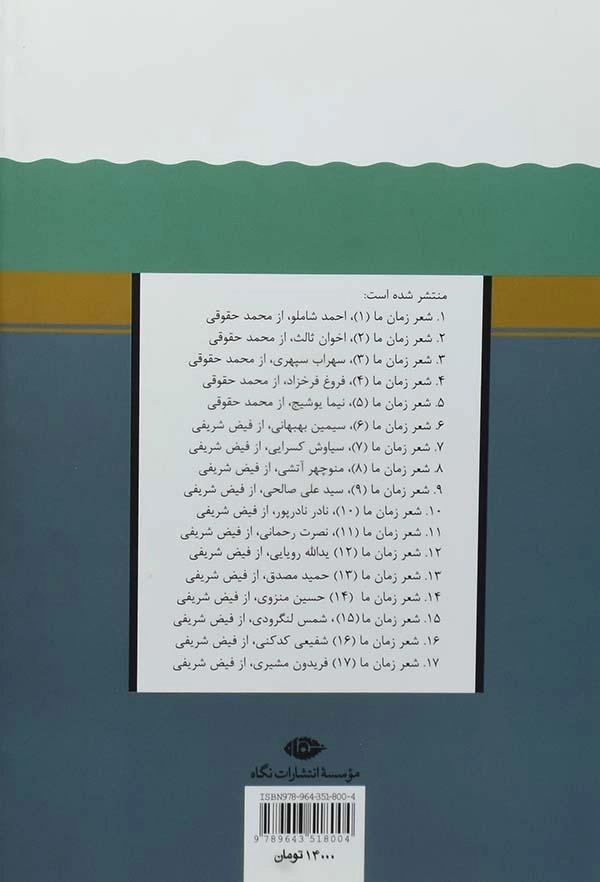 منتشر شده است:
۱. شعر زمان ما (۱)، احمد شاملو، از محمد حقوقی
۲. شعر زمان ما (۲)، اخوان ثالث، از محمد حقوقی
۳. شعر زمان ما (۳)، سهراب سپهری، از محمد حقوقی
۴. شعر زمان ما (۴)، فروغ فرخزاد، از محمد حقوقی
۵. شعر زمان ما (۵)، نیما یوشیج، از محمد حقوقی
۶. شعر زمان ما (۶)، سیمین بهبهانی، از فیض شریفی
۷. شعر زمان ما (۷)، سیاوش کسرایی، از فیض شریفی
۸. شعر زمان ما (۸)، منوچهر آتشی، از فیض شریفی
۹. شعر زمان ما (۹)، سید علی صالحی، از فیض شریفی
۱۰. شعر زمان ما (۱۰)، نادر نادرپور، از فیض شریفی
۱۱. شعر زمان ما (۱۱)، نصرت رحمانی، از فیض شریفی
۱۲. شعر زمان ما (۱۲) یدالله رویایی، از فیض شریفی
۱۳. شعر زمان ما (۱۳) حمید مصدق، از فیض شریفی
۱۴. شعر زمان ما (۱۴) حسین منزوی، از فیض شریفی
۱۵. شعر زمان ما (۱۵)، شمس لنگرودی، از فیض شریفی
۱۶. شعر زمان ما (۱۶) شفیعی کدکنی، از فیض شریفی
۱۷. شعر زمان ما (۱۷) فریدون مشیری، از فیض شریفی
مؤسسهٔ انتشارات نگاه
ISBN978-964-351-800-4
9 789643 518004
۱۴۰۰۰ تومان